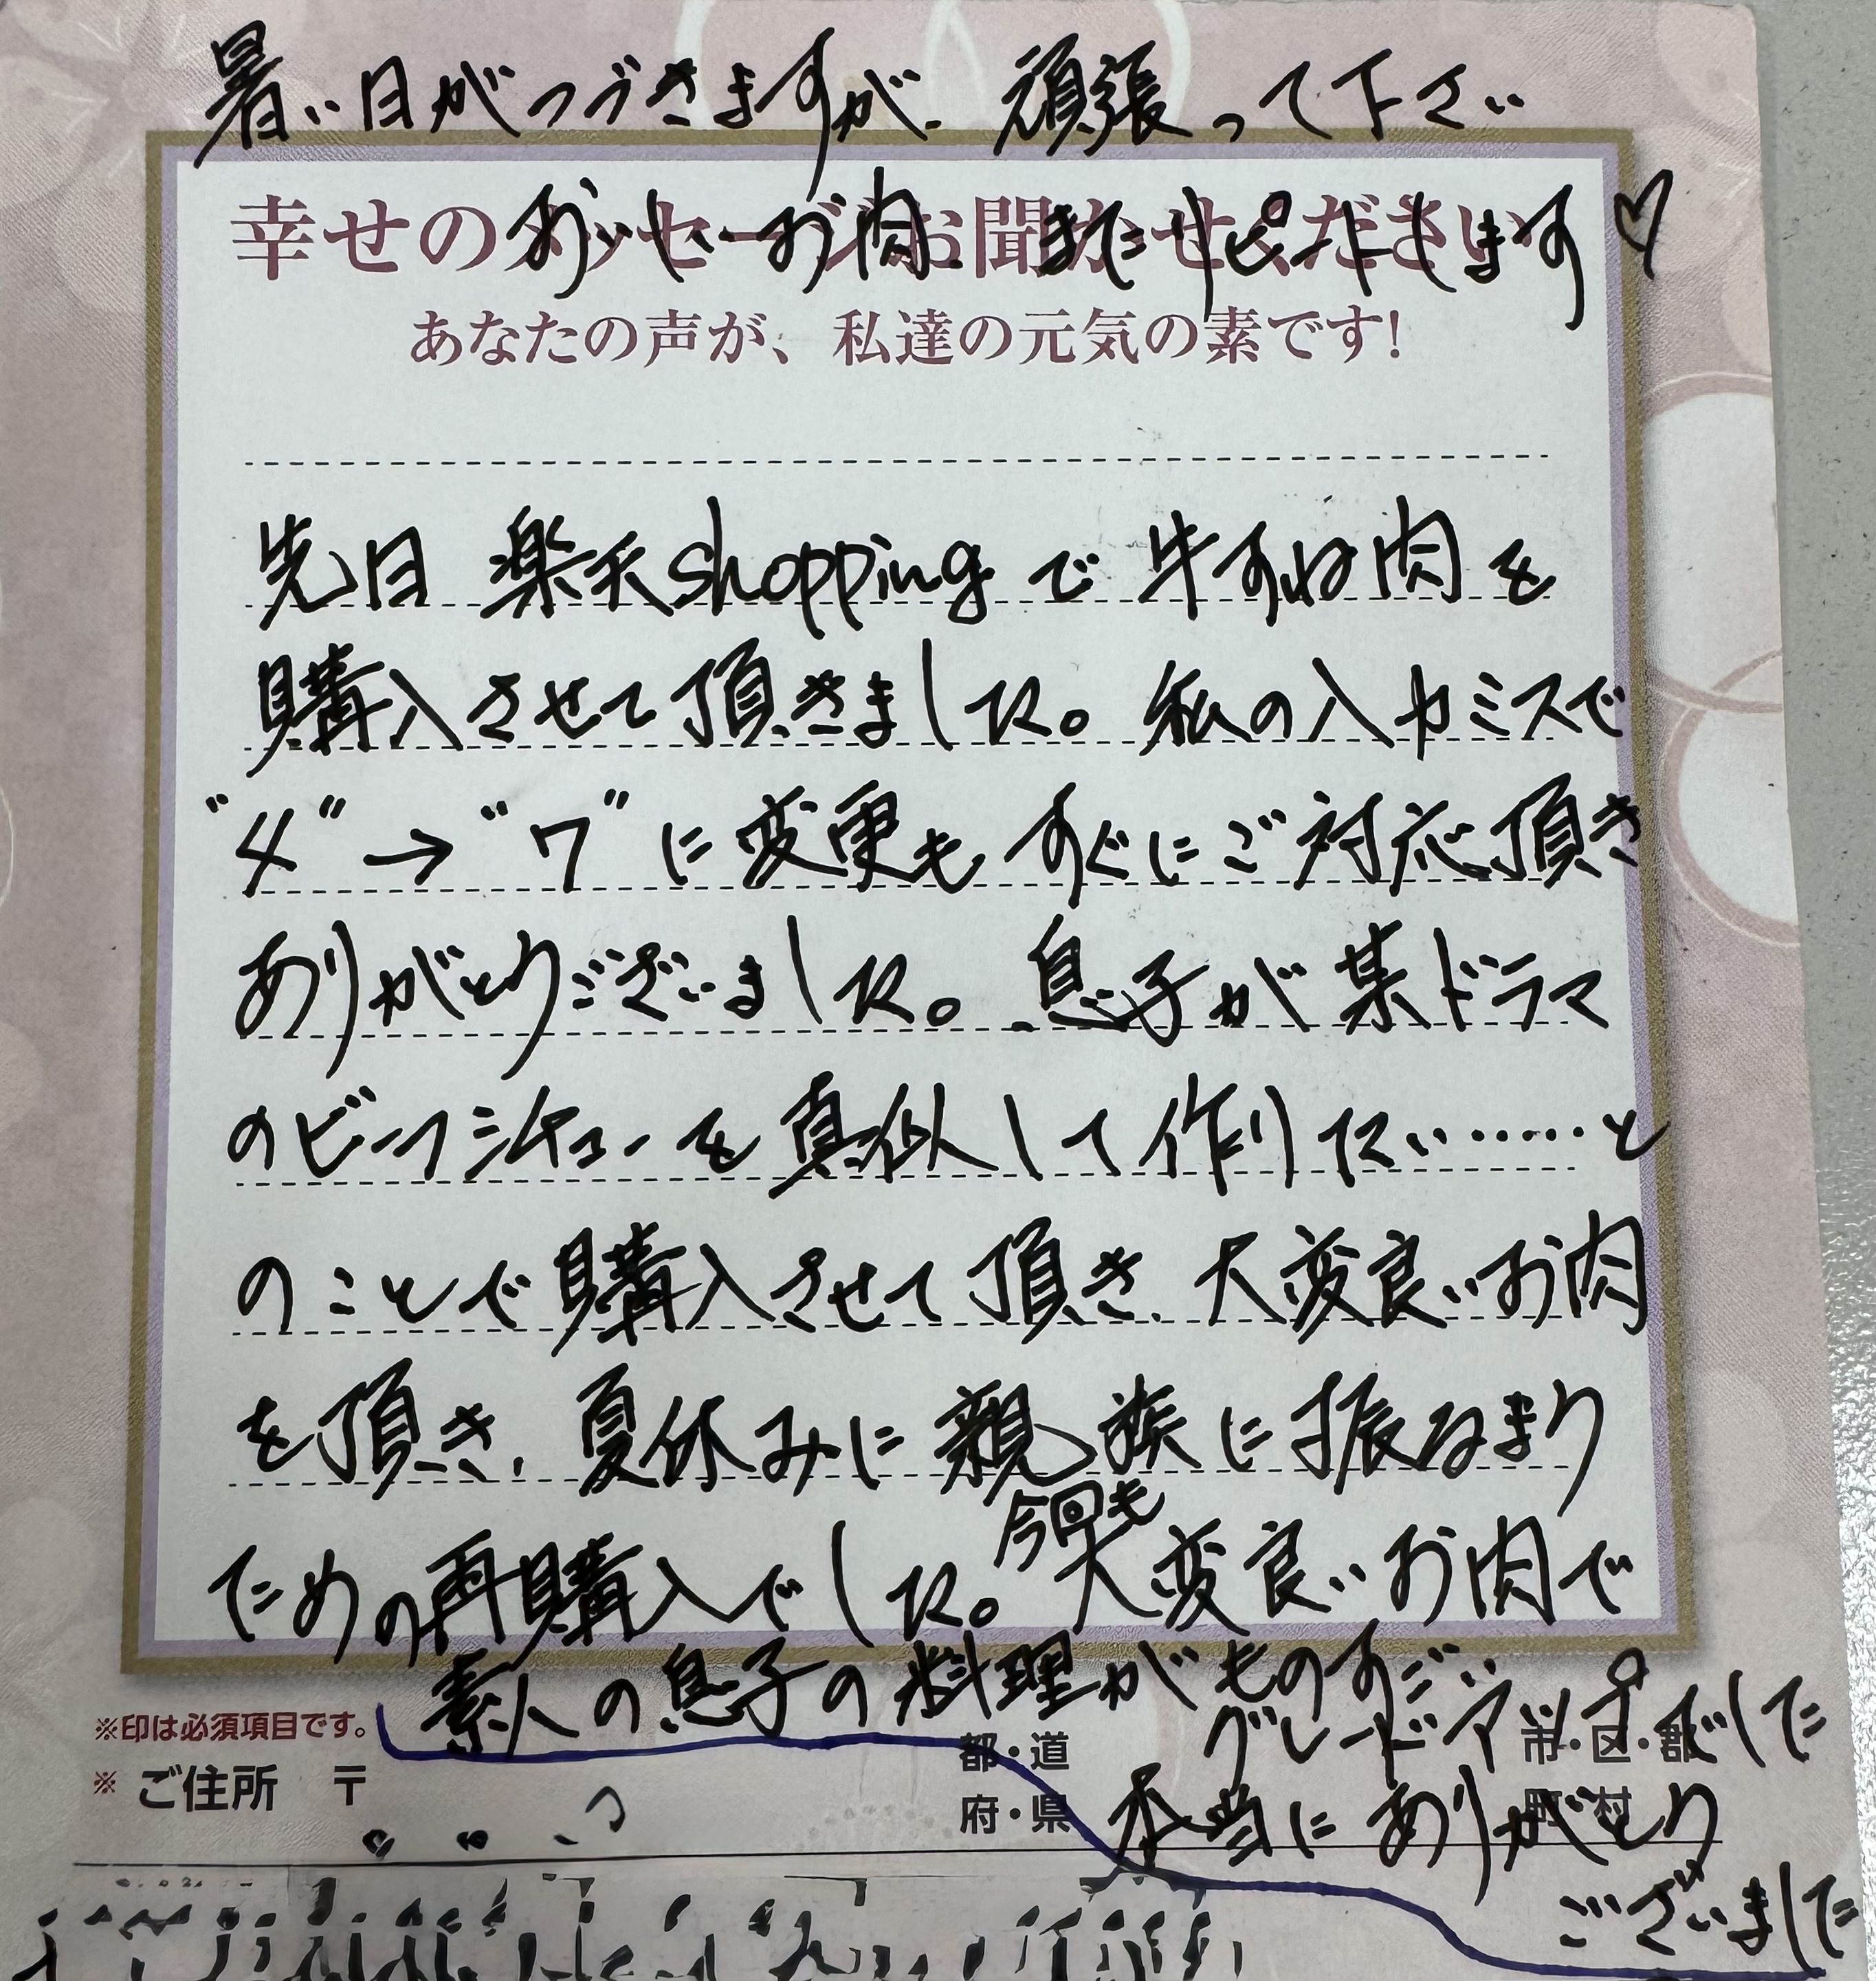 暑い日がつづきますが、頑張って下さい
幸せのメッセージお聞かせください
おいしーお肉、またリピートします♡
あなたの声が、私達の元気の素です!
先日 楽天shoppingで牛すね肉を
購入させて頂きました。私の入力ミスで
"4"→"7"に変更も すぐにご対応頂き
ありがとうございました。息子が某ドラマ
のビーフシチューを真似して作りたい……と
のことで購入させて頂き、大変良いお肉
を頂き、夏休みに親族に振るまう
ための再購入でした。今回も大変良いお肉で
素人の息子の料理がものすごい
グレードアップでした
本当にありがとう
ございました
※印は必須項目です。
※ ご住所 〒
都・道
府・県
市・区・郡
町・村